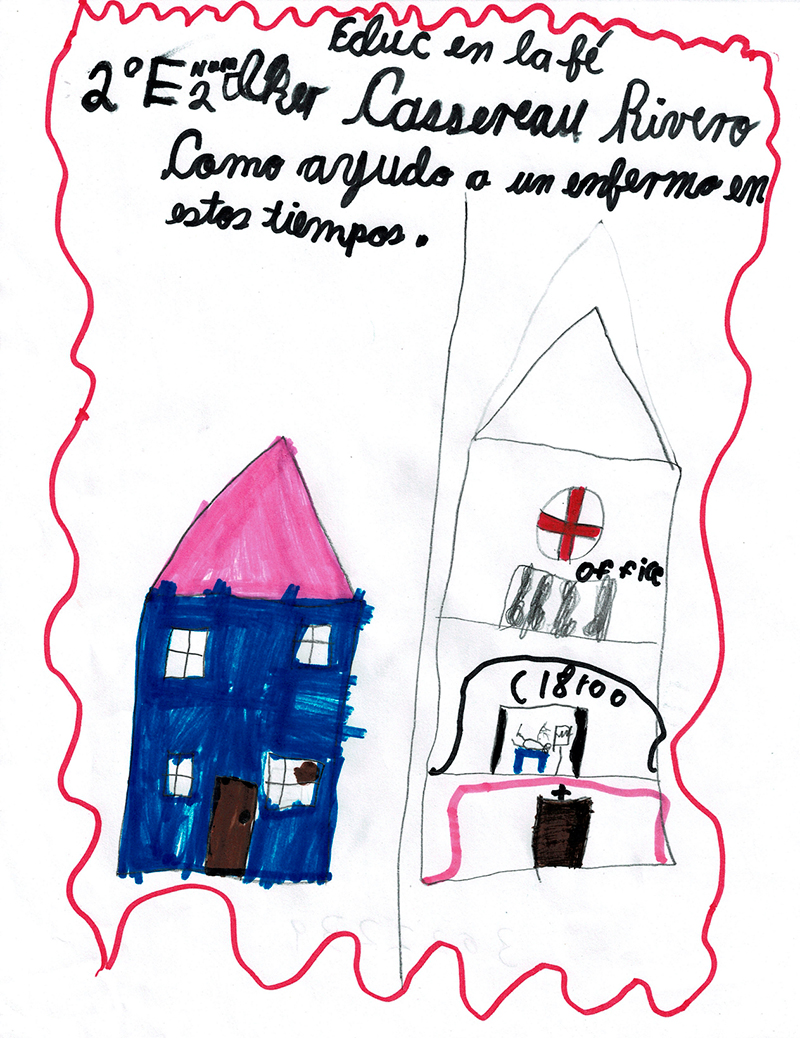 Educ en la fé
2°E Num 2 Cassereau Rivero
Como ayudo a un enfermo en
estos tiempos.
office